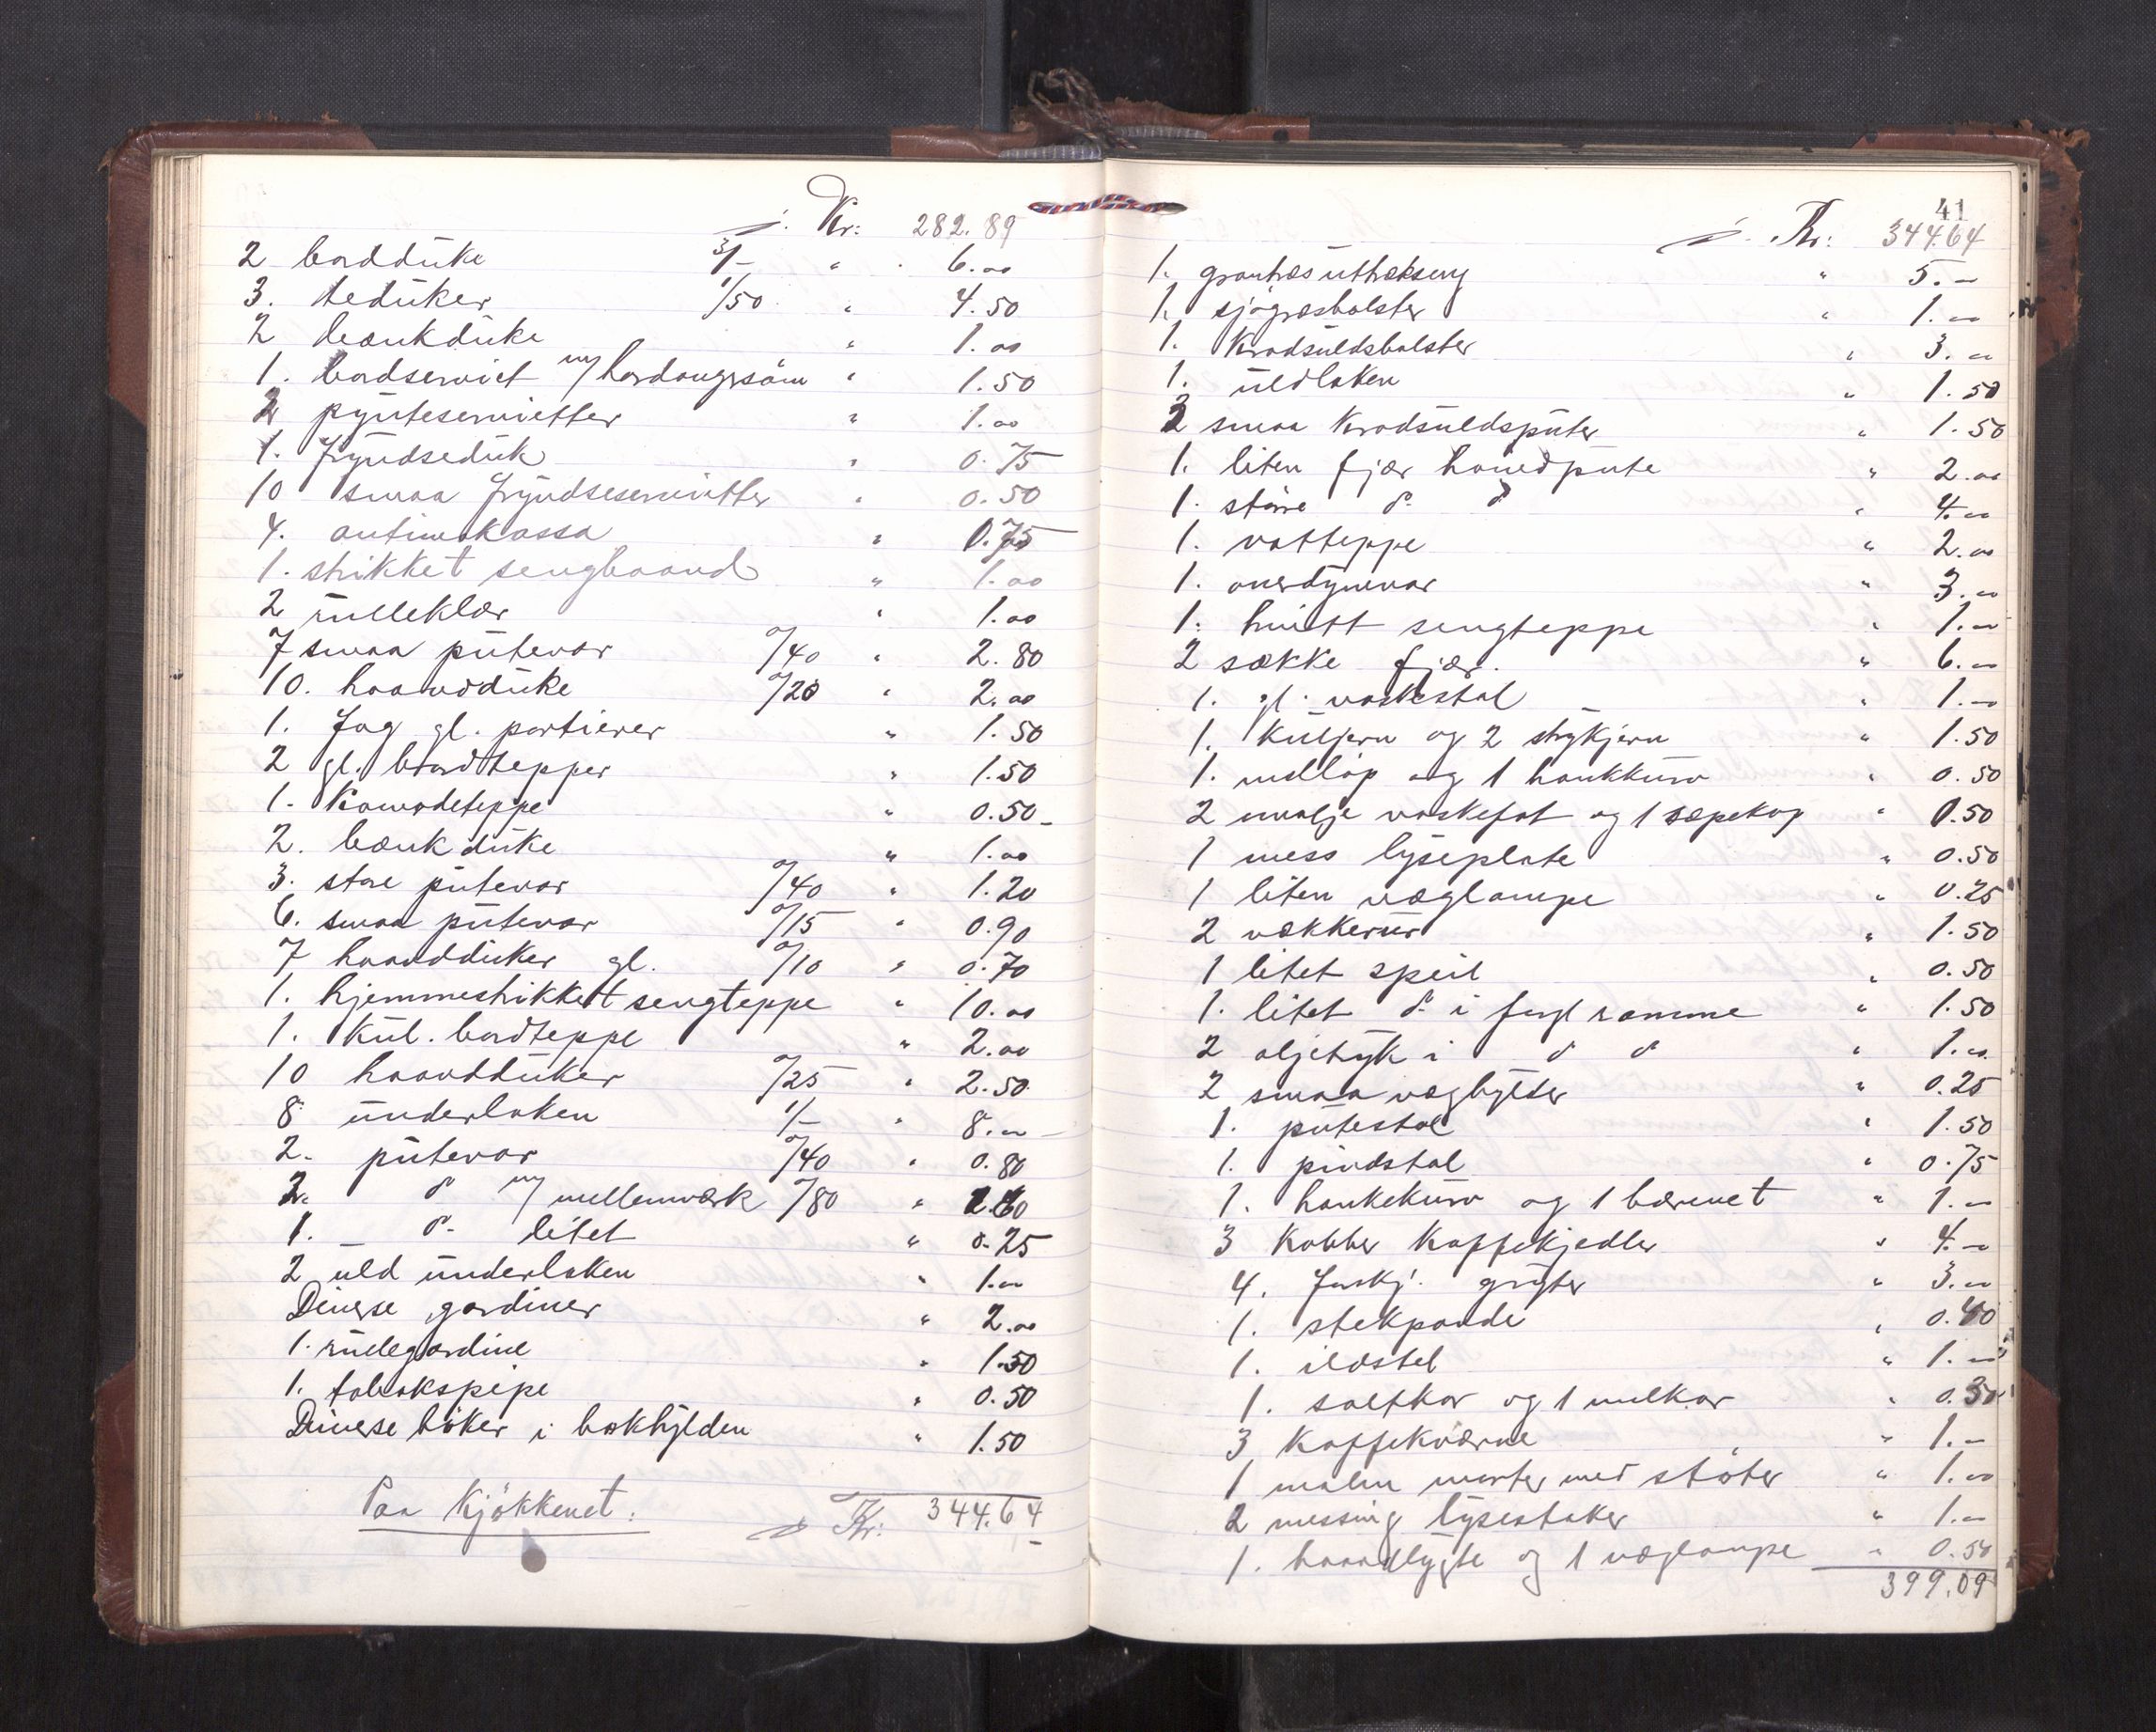 Kr: 282.89
2 bordduke 3/- " 6.00
3. teduker 1/50 " 4.50
2 bænkduke " 1.00
1. bordserviet m/ hardangersöm " 1.50
2 pynteservietter " 1.00
1. fryndseduk " 0.75
10 smaa fryndseservietter " 0.50
4. antimakassa " 0.75
1. strikket sengbaand " 1.00
2 rulleklær " 1.00
7 smaa putevar 0/40 " 2.80
10. haandduke 0/20 " 2.00
1. Fag gl. portierer " 1.50
2 gl. bordtepper " 1.50
1. Komodeteppe " 0.50
2. bænkduke " 1.00
3. store putevar 0/40 " 1.20
6. smaa putevar 0/15 " 0.90
7 haandduker gl. 0/10 " 0.70
1. hjemmestrikket sengteppe " 10.00
1. Kul. bordteppe " 2.00
10 haandduker 0/25 " 2.50
8 underlaken 1/- " 8.00
2. putevar 0/40 " 0.80
2. do m/ mellemværk 0/80 " 1.60
1. do litet " 0.25
2 uld underlaken " 1.00
Diverse gardiner " 2.00
1. rullegardine " 1.50
1. tobakspipe " 0.50
Diverse böker i bokhylden " 1.50
Paa Kjökkenet: Kr: 344.64
41
Kr: 344.64
1. grantræs uttrækseng " 5.-
1. sjøgræsbolster " 1.00
1. Krodsuldsbolster " 3.00
1. uldlaken " 1.50
3 smaa Krodsuldsputer " 1.50
1. liten fjær hovedpute " 2.00
1. större do do " 4.00
1. vatteppe " 2.00
1. overdynevar " 3.00
1. hvitt sengteppe " 1.00
2 sække fjær. " 6.00
1. gl. vaskestol " 1.00
1. Kuljern og 2 strykjern " 1.50
1. melløp og 1 hankkurv " 0.50
2 emalje vaskefat og 1 sæpekop " 0.50
1 mess lyseplate " 0.50
1 liten væglampe " 0.25
2 vækkerur " 1.50
1 litet speil " 0.50
1. litet do i forgl ramme " 1.50
2 oljetryk i do do " 1.00
2 smaa væghylder " 0.25
1. putestol " 1.50
1. pindstol " 0.75
1. hankekurv og 1 bærenet " 1.00
3 Kobber Kaffekjedler " 4.00
4. Forskj. gryter " 3.00
1. stekpande " 0.40
1. ildstel " 1.00
1. saltkar og 1 melkar " 0.30
3 Kaffekværne " 1.-
1 malm morter med støter " 1.00
2 messing lysestaker " 1.00
1. haandlygte og 1 væglampe " 0.50
399.09